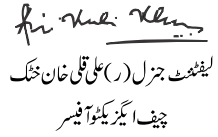 Ali Kuli Khan
لیفٹننٹ جنرل (ر) علی قلی خان خٹک
چیف ایگزیکٹو آفیسر